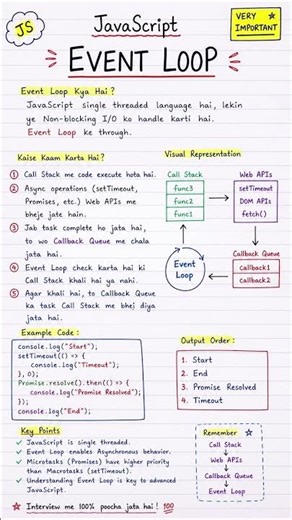 JS
JavaScript
EVENT LOOP
VERY
IMPORTANT
Event Loop Kya Hai?
JavaScript single threaded language hai, lekin
ye Non-blocking I/O ko handle karti hai.
Event Loop ke through.
Kaise Kaam Karta Hai?
1 Call Stack me code execute hota hai.
2 Async operations (setTimeout,
Promises, etc.) Web APIs me
bheje jate hain.
3 Jab task complete ho jata hai,
to wo Callback Queue me chala
jata hai.
4 Event Loop check karta hai ki
Call Stack khali hai ya nahi.
5 Agar khali hai, to Callback Queue
ka task Call Stack me bhej diya
jata hai.
Visual Representation
Call Stack
func3
func2
func1
Web APIs
setTimeout
DOM APIs
fetch()
Event
Loop
Callback Queue
Callback1
Callback2
Example Code:
console.log("Start");
setTimeout(() => {
console.log("Timeout");
}, 0);
Promise.resolve().then(() => {
console.log("Promise Resolved");
});
console.log("End");
Output Order:
1. Start
2. End
3. Promise Resolved
4. Timeout
Key Points
✓ JavaScript is single threaded.
✓ Event Loop enables Asynchronous behavior.
✓ Microtasks (Promises) have higher priority
than Macrotasks (setTimeout).
✓ Understanding Event Loop is key to advanced
JavaScript.
Remember
Call Stack
Web APIs
Callback Queue
Event Loop
Interview me 100% poocha jata hai! 100